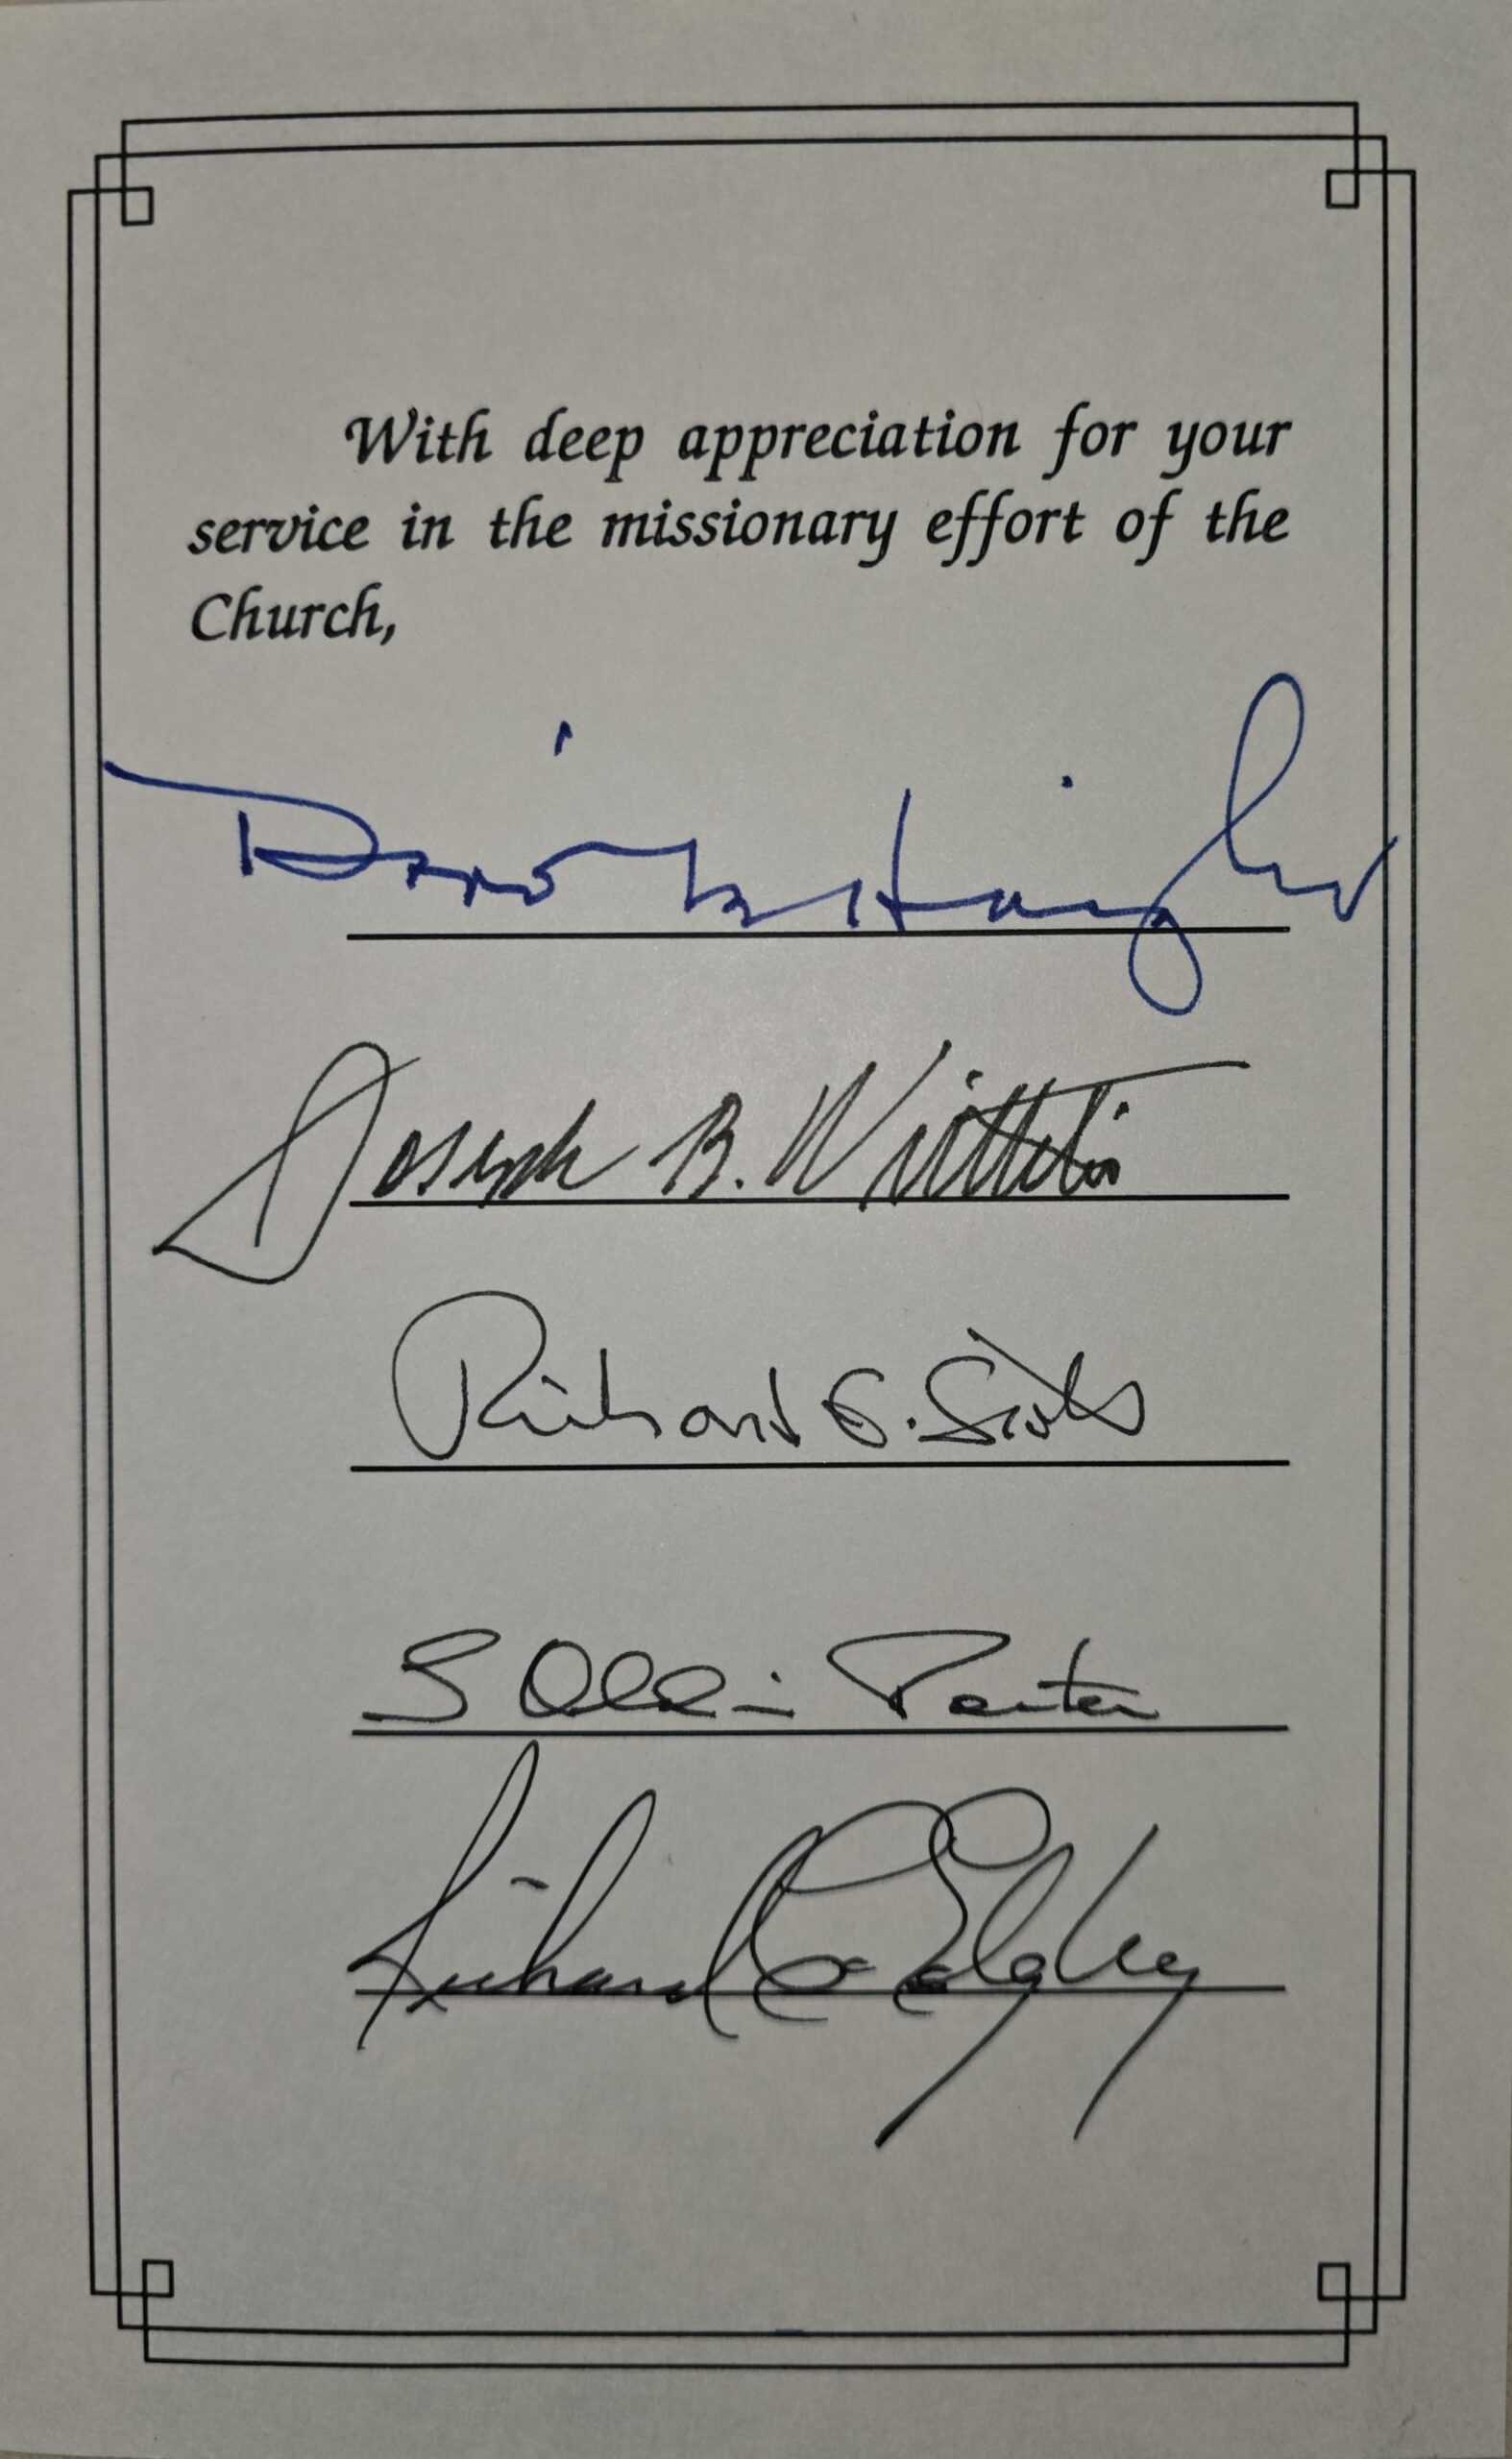 With deep appreciation for your
service in the missionary effort of the
Church,
David B. Haight
Joseph B. Wirthlin
Richard G. Scott
L Aldin Porter
Richard C. Edgley